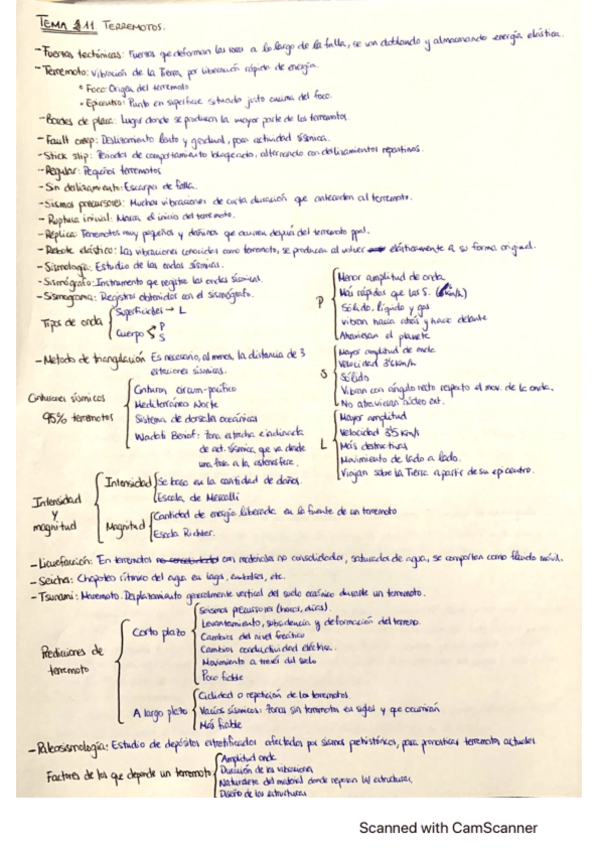 TEMA 11 TERREMOTOS.
- Fuerzas tectónicas: Fuerzas que deforman las rocas a lo largo de la falla, se van doblando y almacenando energía elástica.
- Terremoto: Vibración de la Tierra, por liberación rápida de energía.
• Foco: Origen del terremoto
• Epicentro: Punto en superficie situado justo encima del foco.
- Bordes de placa: Lugar donde se producen la mayor parte de los terremotos.
- Fault creep: Deslizamiento lento y gradual, poca actividad sísmica.
- Stick slip: Periodos de comportamiento bloqueado, alternando con deslizamientos repentinos.
- Regular: Pequeños terremotos
- Sin deslizamiento: Escarpa de falla.
- Sismos precursores: Muchas vibraciones de corta duración que anteceden al terremoto.
- Ruptura inicial: Marca el inicio del terremoto.
- Réplica: Terremotos muy pequeños y dañinos que ocurren después del terremoto ppal.
- Rebote elástico: Las vibraciones conocidas como terremoto, se producen al volver elásticamente a su forma original.
- Sismología: Estudio de las ondas sísmicas.
- Sismógrafo: Instrumento que registra las ondas sísmicas.
- Sismograma: Registros obtenidos con el sismógrafo.
Tipos de onda
Superficiales → L
Cuerpo
P
S
P
Menor amplitud de onda
Más rápidas que las S. (6km/h)
Sólido, líquido y gas
vibran hacia atrás y hacia delante
Atraviesan el planeta
S
Mayor amplitud de onda
Velocidad 3'6km/h
Sólido
Vibran con ángulo recto respecto el mov. de la onda.
No atraviesan núcleo ext.
L
Mayor amplitud
Velocidad 3'5 km/h
Más destructivas
Movimiento de lado a lado.
Viajan sobre la Tierra a partir de su epicentro.
- Método de triangulación Es necesario, al menos, la distancia de 3
estaciones sísmicas.
Cinturones sísmicos
95% terremotos
Cinturón circum-pacífico
Mediterráneo Norte
Sistema de dorsales oceánicas
Wadati Benioff: zona estrecha e inclinada
de act. sísmica, que va desde
una fosa a la astenosfera.
Intensidad
y
magnitud
Intensidad
Se basa en la cantidad de daños.
Escala de Mercalli
Magnitud
Cantidad de energía liberada en la fuente de un terremoto
Escala Richter.
- Licuefacción: En terremotos con materiales no consolidados, saturados de agua, se comportan como fluido móvil.
- Seicha: Chapoteo rítmico del agua en lagos, embalses, etc.
- Tsunami: Maremoto. Desplazamiento generalmente vertical del suelo oceánico durante un terremoto.
Predicciones de
terremoto
Corto plazo
Seísmos precursores (horas, días).
Levantamiento, subsidencia y deformación del terreno.
Cambios del nivel freático
Cambios conductividad eléctrica.
Movimiento a través del suelo
Poco fiable
A largo plazo
Ciclidad o repetición de los terremotos.
Vacíos sísmicos: zonas sin terremotos en siglos y que ocurrirán
Más fiable
- Paleosismología: Estudio de depósitos estratificados afectados por sismos prehistóricos, para pronosticar terremotos actuales
Factores de los que depende un terremoto
Amplitud onda
Duración de las vibraciones
Naturaleza del material donde reposan las estructuras
Diseño de las estructuras
Scanned with CamScanner